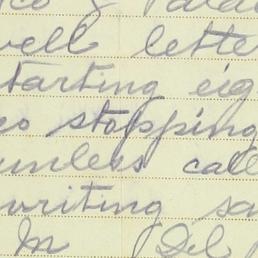 well lette
tarting eig
o stopping
unless call
writing sa
In Del